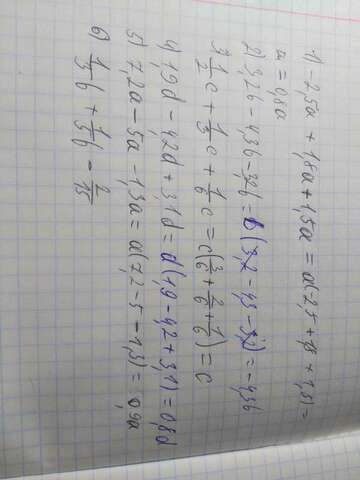 1) -2,5a + 1,8a + 1,5a = a(-2,5 + 1,8 + 1,5) =
a = 0,8a
2) 3,2b - 4,3b - 3,2b = b(3,2 - 4,3 - 3,2) = -4,3b
3 1/2 c + 1/3 c + 1/6 c = c(3/6 + 2/6 + 1/6) = c
4) 1,9d - 4,2d + 3,1d = d(1,9 - 4,2 + 3,1) = 0,8d
5) 7,2a - 5a - 1,3a = a(7,2 - 5 - 1,3) = 0,9a
6) 1/3 b + 1/3 b -